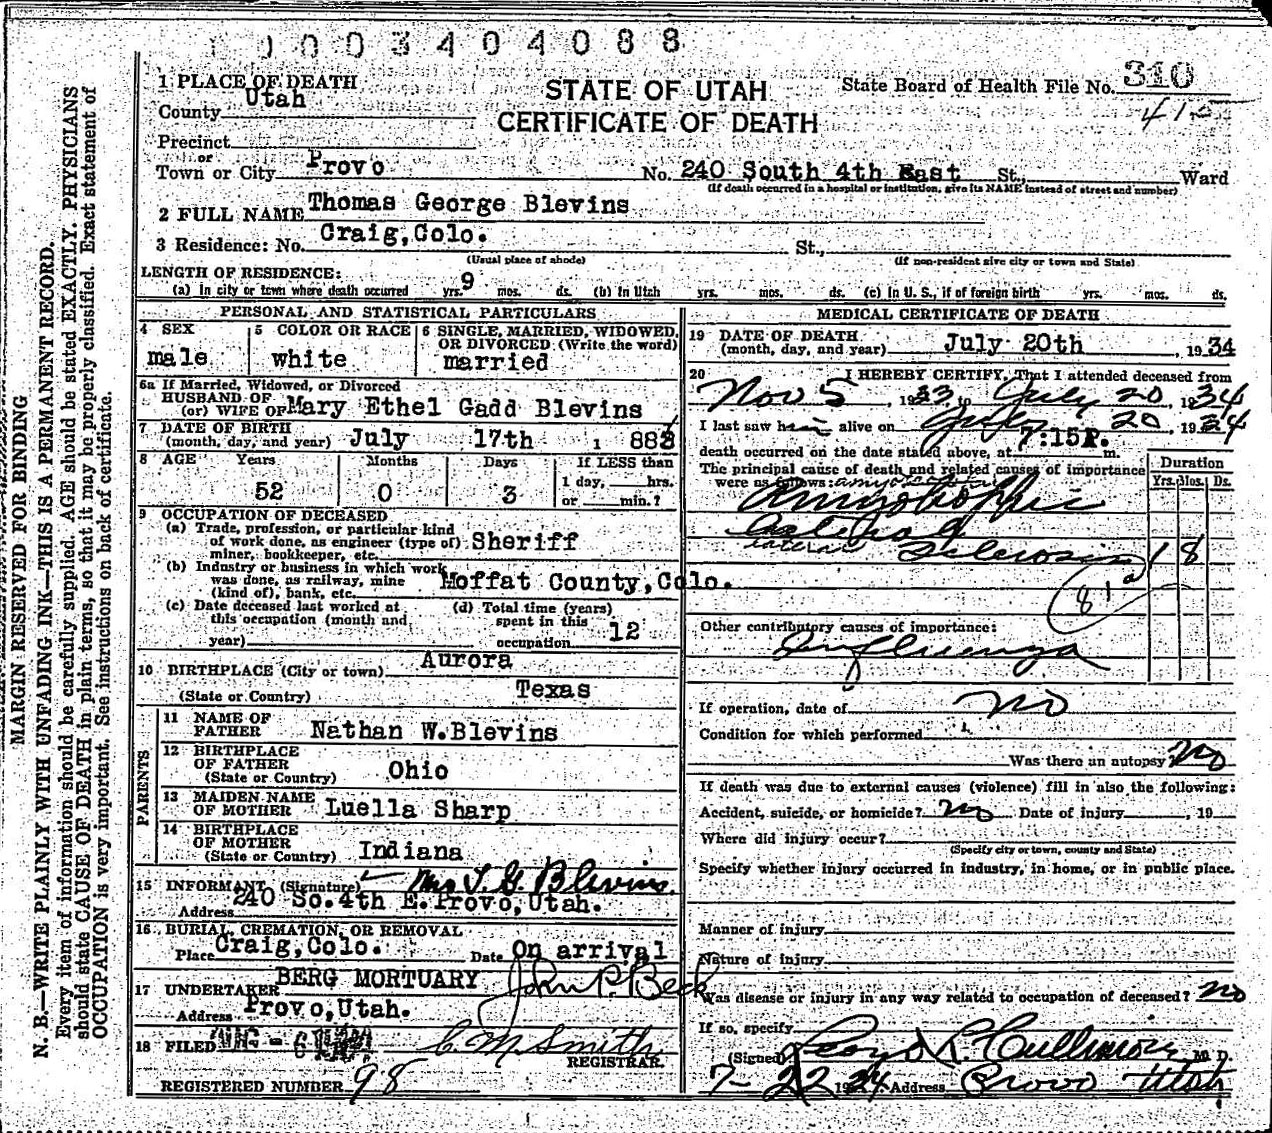 0003404088
1 PLACE OF DEATH
County Utah
STATE OF UTAH
CERTIFICATE OF DEATH
State Board of Health File No. 310
415
Precinct
or
Town or City Provo No. 240 South 4th East St., Ward
(If death occurred in a hospital or institution, give its NAME instead of street and number)
2 FULL NAME Thomas George Blevins
3 Residence: No. Craig,Colo. St.,
(Usual place of abode) (If non-resident give city or town and State)
LENGTH OF RESIDENCE:
(a) In city or town where death occurred yrs. 9 mos. ds. (b) In Utah yrs. mos. ds. (c) In U. S., if of foreign birth yrs. mos. ds.
PERSONAL AND STATISTICAL PARTICULARS
4 SEX male
5 COLOR OR RACE white
6 SINGLE, MARRIED, WIDOWED, OR DIVORCED (Write the word) married
6a If Married, Widowed, or Divorced
HUSBAND OF
(or) WIFE OF Mary Ethel Gadd Blevins
7 DATE OF BIRTH
(month, day, and year) July 17th 1 882
8 AGE Years Months Days If LESS than
52 0 3 1 day, hrs.
or min.?
9 OCCUPATION OF DECEASED
(a) Trade, profession, or particular kind
of work done, as engineer (type of) Sheriff
miner, bookkeeper, etc.
(b) Industry or business in which work
was done, as railway, mine Moffat County,Colo.
(kind of), bank, etc.
(c) Date deceased last worked at
this occupation (month and
year)
(d) Total time (years)
spent in this
occupation 12
10 BIRTHPLACE (City or town) Aurora
(State or Country) Texas
PARENTS
11 NAME OF
FATHER Nathan W.Blevins
12 BIRTHPLACE
OF FATHER Ohio
(State or Country)
13 MAIDEN NAME
OF MOTHER Luella Sharp
14 BIRTHPLACE
OF MOTHER
(State or Country) Indiana
15 INFORMANT (Signature) Mrs T. G. Blevins.
Address 240 So.4th E.Provo,Utah.
16 BURIAL, CREMATION, OR REMOVAL
Place Craig,Colo. Date On arrival
17 UNDERTAKER BERG MORTUARY John P. Beck
Address Provo,Utah.
18 FILED AUG - 6 C. M. Smith
REGISTRAR.
REGISTERED NUMBER 98
MEDICAL CERTIFICATE OF DEATH
19 DATE OF DEATH
(month, day, and year) July 20th , 1934
20 I HEREBY CERTIFY, That I attended deceased from
Nov 5 , 1933 to July 20 , 1934
I last saw him alive on July 20 , 1934
death occurred on the date stated above, at 7:15P. m.
The principal cause of death and related causes of importance
were as follows:
Duration
Yrs. Mos. Ds.
Amyotrophic
lateral Sclerosis 1 8
81a
Other contributory causes of importance:
Influenza
If operation, date of no
Condition for which performed
Was there an autopsy no
If death was due to external causes (violence) fill in also the following:
Accident, suicide, or homicide? no Date of injury , 19
Where did injury occur?
(Specify city or town, county and State)
Specify whether injury occurred in industry, in home, or in public place.
Manner of injury
Nature of injury
Was disease or injury in any way related to occupation of deceased? no
If so, specify
(Signed) Lloyd L. Cullimore M. D.
7-22 1934 Address Provo Utah
MARGIN RESERVED FOR BINDING
N. B.—WRITE PLAINLY WITH UNFADING INK—THIS IS A PERMANENT RECORD.
Every item of information should be carefully supplied. AGE should be stated EXACTLY. PHYSICIANS
should state CAUSE OF DEATH in plain terms, so that it may be properly classified. Exact statement of
OCCUPATION is very important. See instructions on back of certificate.